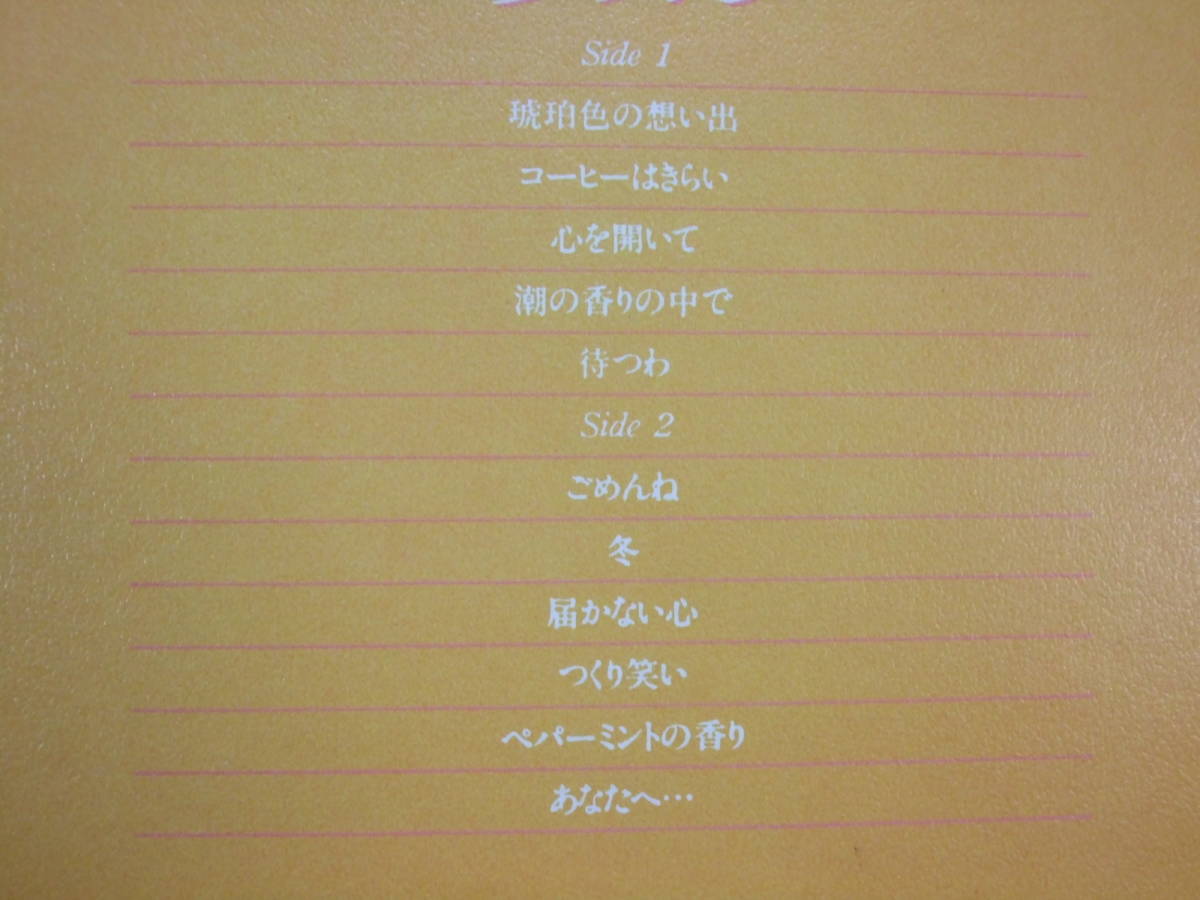 Side 1
琥珀色の想い出
コーヒーはきらい
心を開いて
潮の香りの中で
待つわ
Side 2
ごめんね
冬
届かない心
つくり笑い
ペパーミントの香り
あなたへ…